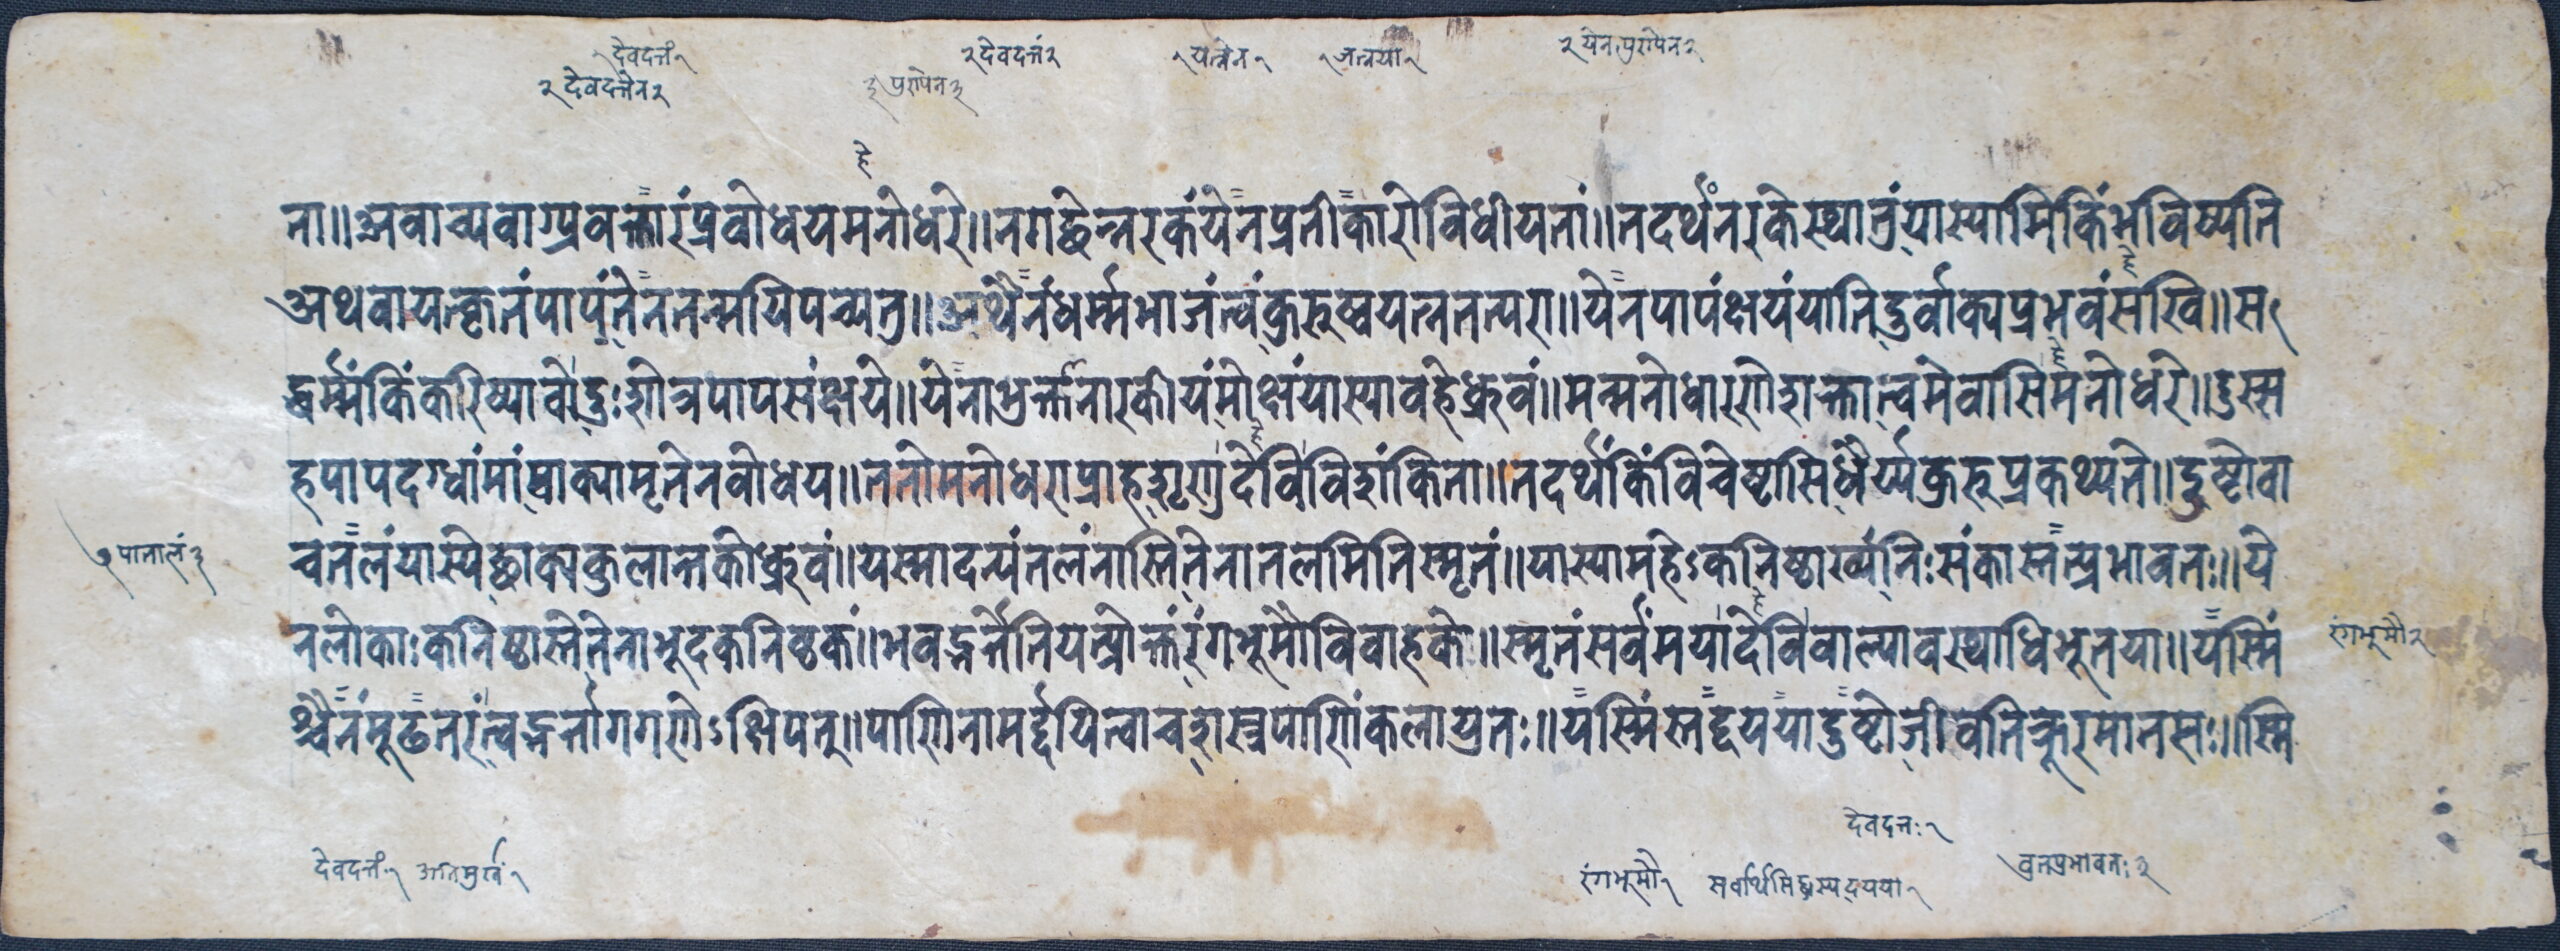 १देवदत्तं१
२देवदत्तेन२
३पुरुषेन३
२देवदत्तं२
१यत्नेन१
१जनया१
२येन पुरुषेन२
हे
ता॥अवाच्यवाग्प्रवक्तारंप्रबोधयमनोधरे॥नगच्छेन्नरकंयेनप्रतीकारोविधीयतां॥तदर्थंनरकेस्थातुंयास्यामिकिंभविष्यति
अथवायत्कृतंपापंतेनतन्मयिपच्यतु॥अथैनंधर्म्मभाजंत्वंकुरुष्वयत्नतत्परा॥येनपापंक्षयंयातिदुर्वाक्यप्रभवंसखि॥स
द्धर्म्मंकिंकरिष्यावोदुःशीत्रपापसंक्षये॥येनाभुर्क्तानारकीयंमोक्षंयास्यावहेध्रुवं॥मन्मनोधारणेशक्तात्वमेवासिमनोधरे॥दुस्स
हपापदग्धांमांस्वाक्यामृतेनबोधय॥ततोमनोधराप्राहशृणुदेविविशंकिता॥तदर्थंकिंविचेष्टासिधैर्य्यंकुरुप्रकथ्यते॥दुष्टोवा
चतलंयास्येछाक्यकुलान्तकोध्रुवं॥यस्मादन्यंतलंनास्तितेनातलमितिस्मृतं॥यास्यामहेऽकनिष्ठाख्यंनिःसंकास्तत्प्रभावतः॥ये
नलोकाःकनिष्ठास्तेतेनाभूदकनिष्ठकं॥भवद्भर्त्तेतियत्प्रोक्तंरंगभूमौविवाहके॥स्मृतंसर्वंमयादेविबाल्यावस्थाधिभूतया॥यस्मिं
श्चैनंमूढतरंत्वद्भर्त्तागगणेऽक्षिपत्॥पाणिनामर्द्दयित्वाचशस्त्रपाणिंकलायुतः॥यस्मिंस्तद्दययादुष्टोजीवतिक्रूरमानसः॥स्मि
५पातालं३
रंगभूमौ२
देवदत्तं१ अतिमुर्खं१
रंगभूमौ१
सर्वार्थसिद्धस्यदयया१
देवदत्तः१
व्रतप्रभावतः३